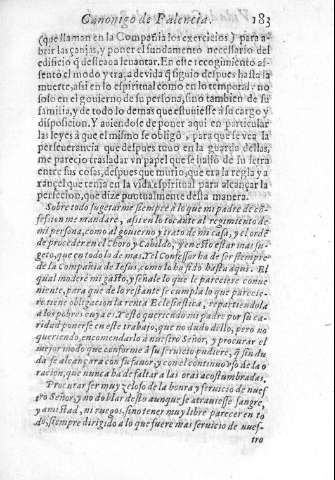 Canonigo de Palencia. 183
(que llaman en la Compañia los exercicios) para a-
brir las çanjas, y poner el fundamento necessario del
edificio q̃ desseaua leuantar. En este recogimiento as-
sento el modo y traça de vida q̃ siguio despues hasta la
muerte, assi en lo espiritual como en lo temporal: no
solo en el gouierno de su persona, sino tambien de su
familia, y de todo lo demas que estuuiesse à su cargo y
disposicion. Y auiendose de poner aqui en particular
las leyes à que el mismo se obligò, para que se vea la
perseuerancia que despues tuuo en la guarda dellas,
me parecio trasladar vn papel que se hallò de su letra
entre sus cosas, despues que murio, que era la regla y a-
rancel que tenia en la vida espiritual para alcançar la
perfecion, que dize puntualmente desta manera.
Sobre todo sugetarme siempre à lo que mi padre de cõ-
fession me mandare, assi en lo tocante al regimiento de
mi persona, como al gouierno y trato de mi casa, y el ordẽ
de proceder en el Choro y Cabildo, y en esto estar mas su-
geto, que en todo lo de mas. Y el Confessor ha de ser siempre
de la Compañia de Iesus, como lo ha sido hasta aqui. El
qual modere mi gasto, y señale lo que le pareciere conue
niente, para que de lo restante se cumpla lo que parecie-
re tiene obligacion la renta Eclesiastica, repartiendola
a los pobres cuya es. Y esto queriendo mi padre por su ca-
ridad ponerse en este trabajo, que no dudo dello, pero no
queriendo, encomendarlo à nuestro Señor, y procurar el
mejor modo que conforme à su seruicio pudiere, q̃ sin du
da se alcançara con su fauor, y con el continuo vso de la o
racion, que nunca ha de faltar a las oras acostumbradas.
Procurar ser muy zeloso de la honra y seruicio de nues-
tro Señor, y no doblar desto aunque se atrauiesse sangre,
y amistad, ni ruegos, sino tener muy libre parecer en to
do, siempre dirigido a lo que fuere mas seruicio de nues-
tro